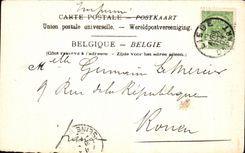 Imprimé
CARTE POSTALE — POSTKAART
Union postale universelle. — Wereldpostvereeniging.
BELGIQUE - BELGIE
(Côté réservé à l'adresse. — Zijde voor het adres alleen.)
Melle Germaine Lemercier
9 Rue de la République
Rouen